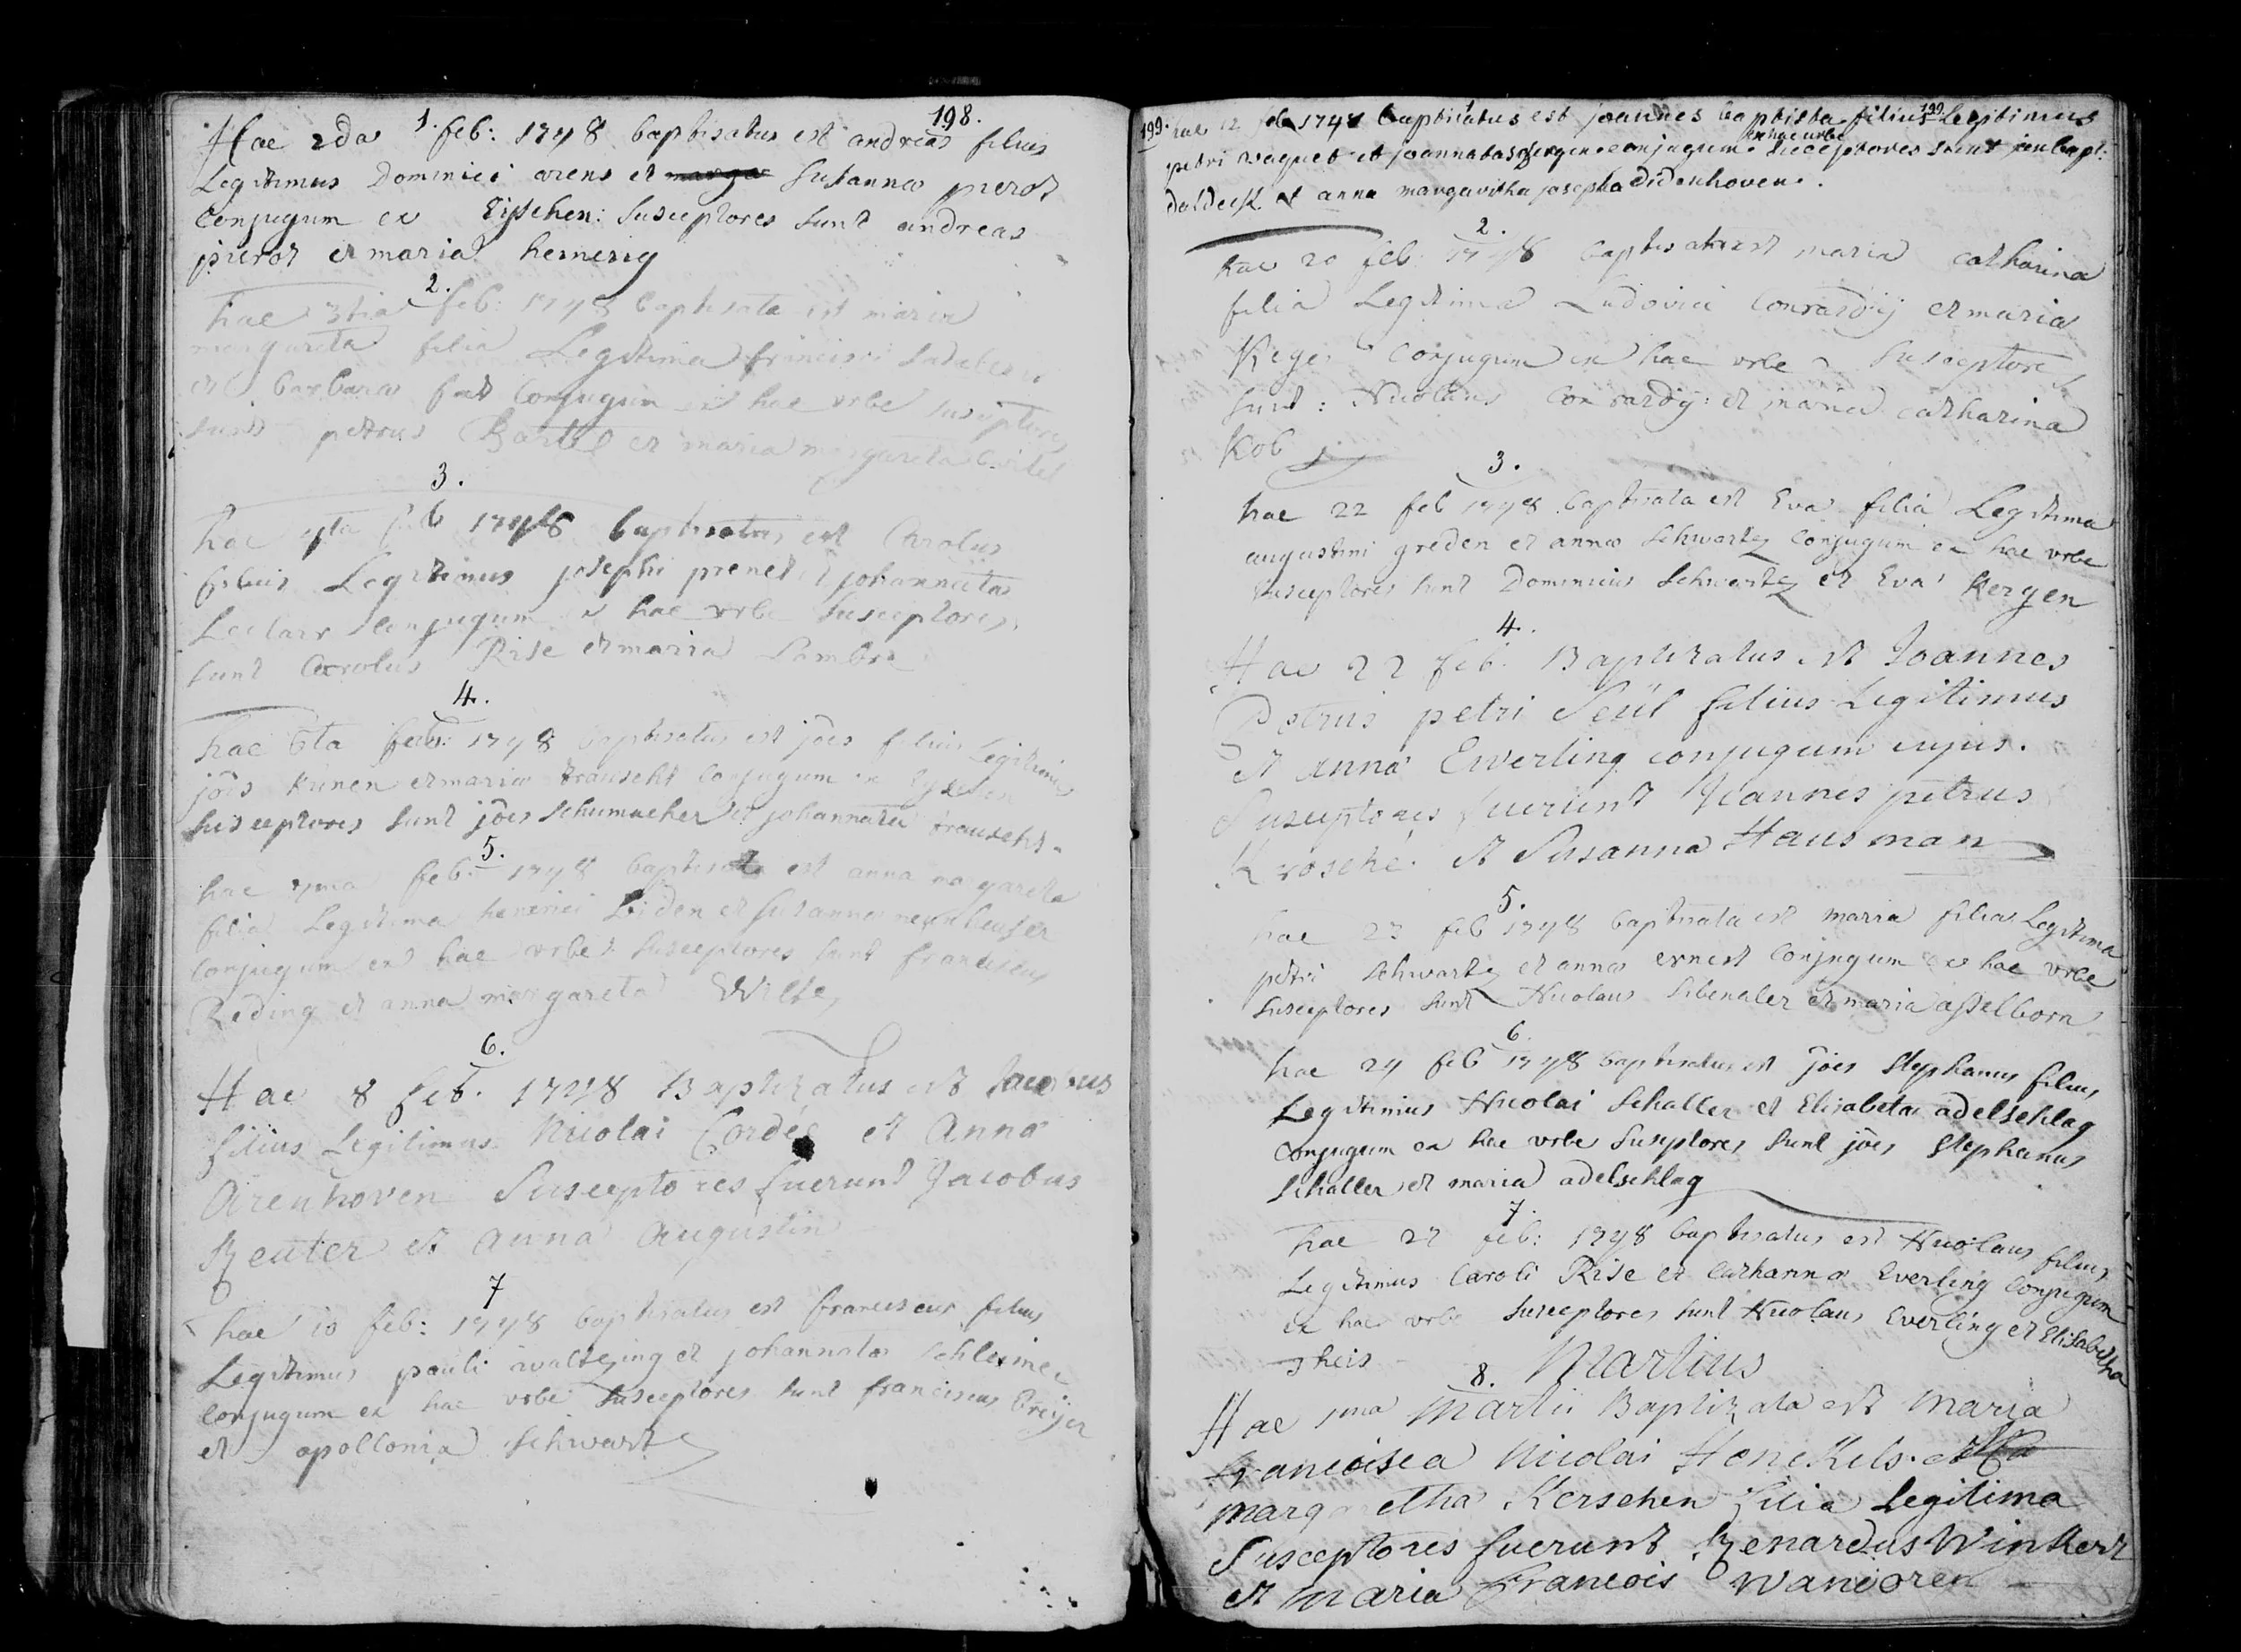 198.
1.
Hae 2da feb: 1748 baptisatus est andreas filius
Legitimus Dominici arens et Susannæ pierot
Conjugum ex Eijschen: Susceptores sunt andreas
pierot et maria hemerig
2.
hae 3tia feb: 1748 baptisata est maria
margareta filia Legitima francisci
et barbaræ Conjugum ex hac urbe susceptores
sunt petrus Bartel et maria margareta
3.
hae 4ta feb 1748 baptisatus est Carolus
filius Legitimus josephi prenet et johannetæ
Leclair Conjugum ex hac urbe Susceptores
sunt Carolus Rise et maria Lambra
4.
hae 6ta feb: 1748 baptisatus est jões filius Legitimus
jões Kunen et mariæ trauseht Conjugum ex
Susceptores sunt jões Schumacher et johannata trauseht.
5.
hae 7ma feb: 1748 baptisata est anna margareta
filia Legitima henrici Leiden et susannæ neunheuser
Conjugum ex hac urbe: Susceptores sunt franciscus
Reding et anna margareta Wilse
6.
Hae 8 feb. 1748 Baptizatus est Jacobus
filius Legitimus Nicolai Cordés et Anna
Arenhoven Susceptores fuerunt Jacobus
Reuter et Anna Augustin
7
hae 10 feb: 1748 baptisatus est franciscus filius
Legitimus pauli avaltzing et johannatæ Schleimer
Conjugum ex hac urbe Susceptores sunt franciscus breijer
et apollonia Schwartz
199. 1 199.
hac 12 feb 1748 baptisatus est joannes baptista filius legitimus
petri waquet et joannatas Jergen conjugum ex hac urbe Susceptores sunt joan bapt:
daldeck et anna margaritha josepha didenhoven.
2.
hae 20 feb: 1748 baptisata est maria catharina
filia Legitima Ludovici Conrardij et maria
Keger Conjugum ex hac urbe Susceptores
sunt: Nicolaus Conrardij: et maria catharina
Kob
3.
hae 22 feb 1748 baptisata est Eva filia Legitima
augustini greden et annæ Schwartz Conjugum ex hac urbe
Susceptores sunt Dominicus Schwartz et Eva Kergen
4.
Hae 22 feb. Baptizatus est Joannes
Petrus petri Seül filius Legitimus
et Anna Ewerling conjugum cujus.
Susceptores fuerunt Joannes petrus
Krosché. et Susanna Hausman
5.
hae 23 feb 1748 baptisata est maria filia Legitima
petri Schwartz et annæ ernest Conjugum ex hac urbe
Susceptores sunt Nicolaus Sibenaler et maria asselborn
6.
hae 24 feb 1748 baptisatus est jões Stephanus filius
Legitimus Nicolai Schaller et Elisabetæ adelschlag
Conjugum ex hac urbe Suseptores sunt jões Stephanus
Schaller et maria adelschlag
7.
hae 27 feb: 1748 baptisatus est Nicolaus filius
Legitimus Caroli Rise et Catharinæ Everling Conjugum
ex hac urbe Susceptores sunt Nicolaus Everling et Elisabetha
theis
Martius
8.
Hae 1ma Martii Baptizata est Maria
Francisca Nicolai Honekels. et
margaretha Kerschen filia legitima
Susceptores fuerunt Renardus Winkert
et Maria Francois Wandoren